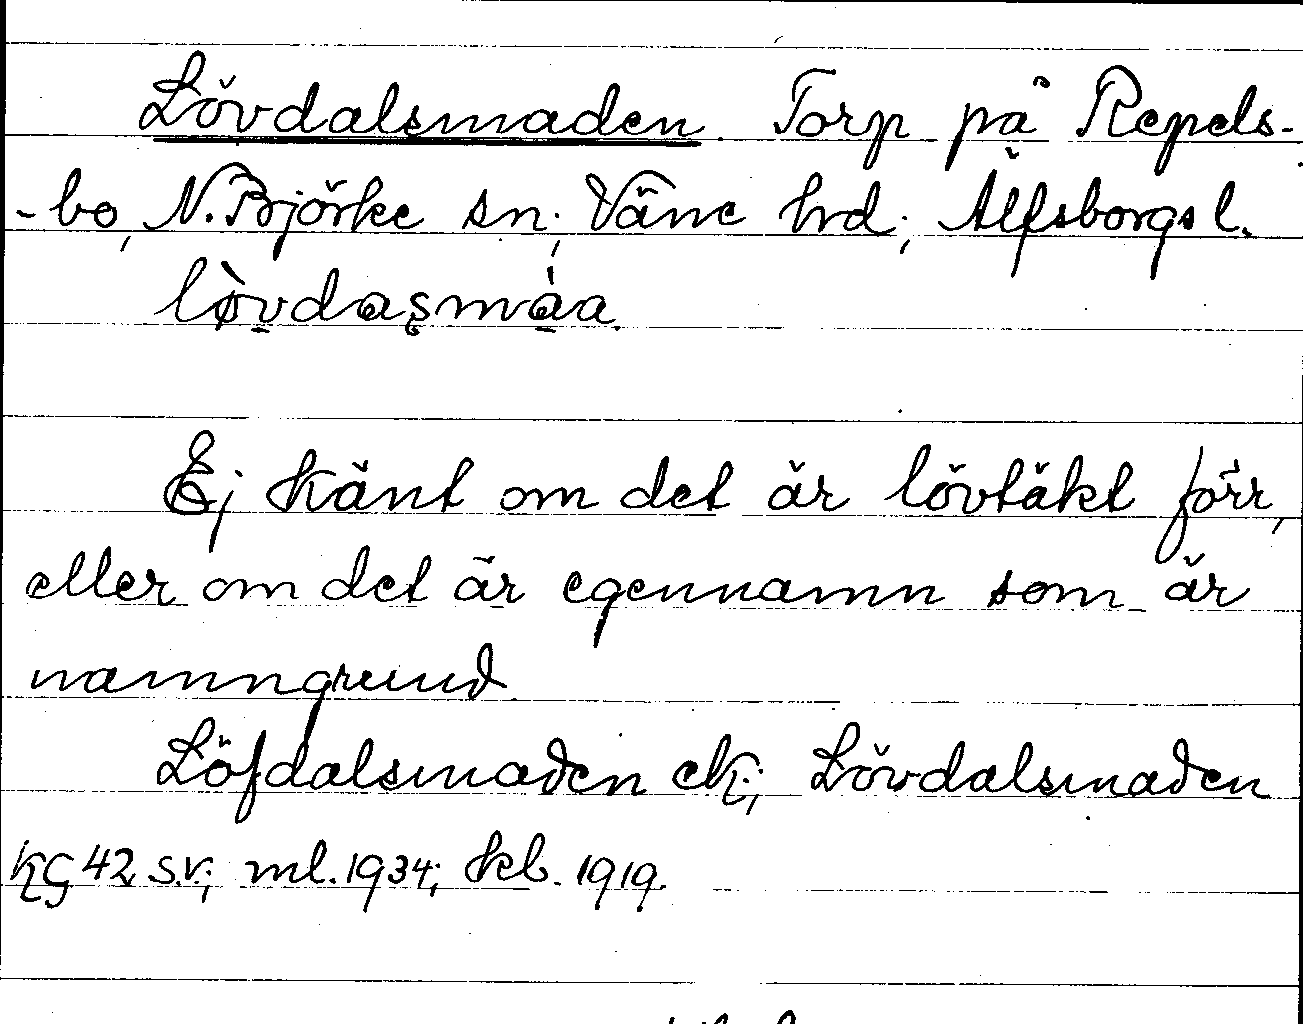 Lövdalsmaden. Torp på Repels-
-bo, N. Björke sn; Väne hd; Älfsborgs l.
lòvdasmàa.
Ej känt om det är lövtäkt förr,
eller om det är egennamn som är
namngrund.
Löfdalsmaden ek; Lövdalsmaden
KG 42 s.v; ml. 1934; kb. 1919.